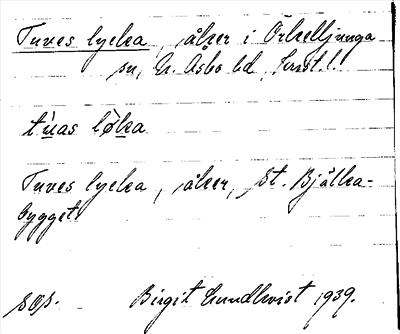 Tuves lycka, åker i Örkelljunga
sn, N. Åsbo hd, Krist. l.
tùas lø̀ka
Tuves lycka, åker, St. Bjälka-
bygget
sop.
Birgit Lundkvist 1939.